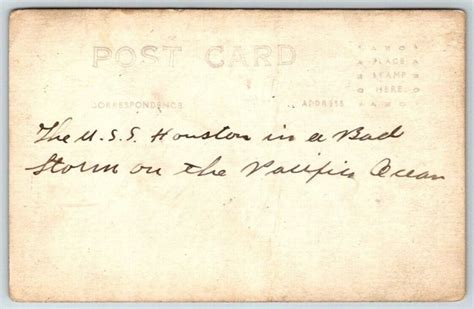 POST CARD
PLACE
STAMP
HERE
CORRESPONDENCE ADDRESS
The U.S.S. Houston in a Bad
Storm on the Pacific Ocean